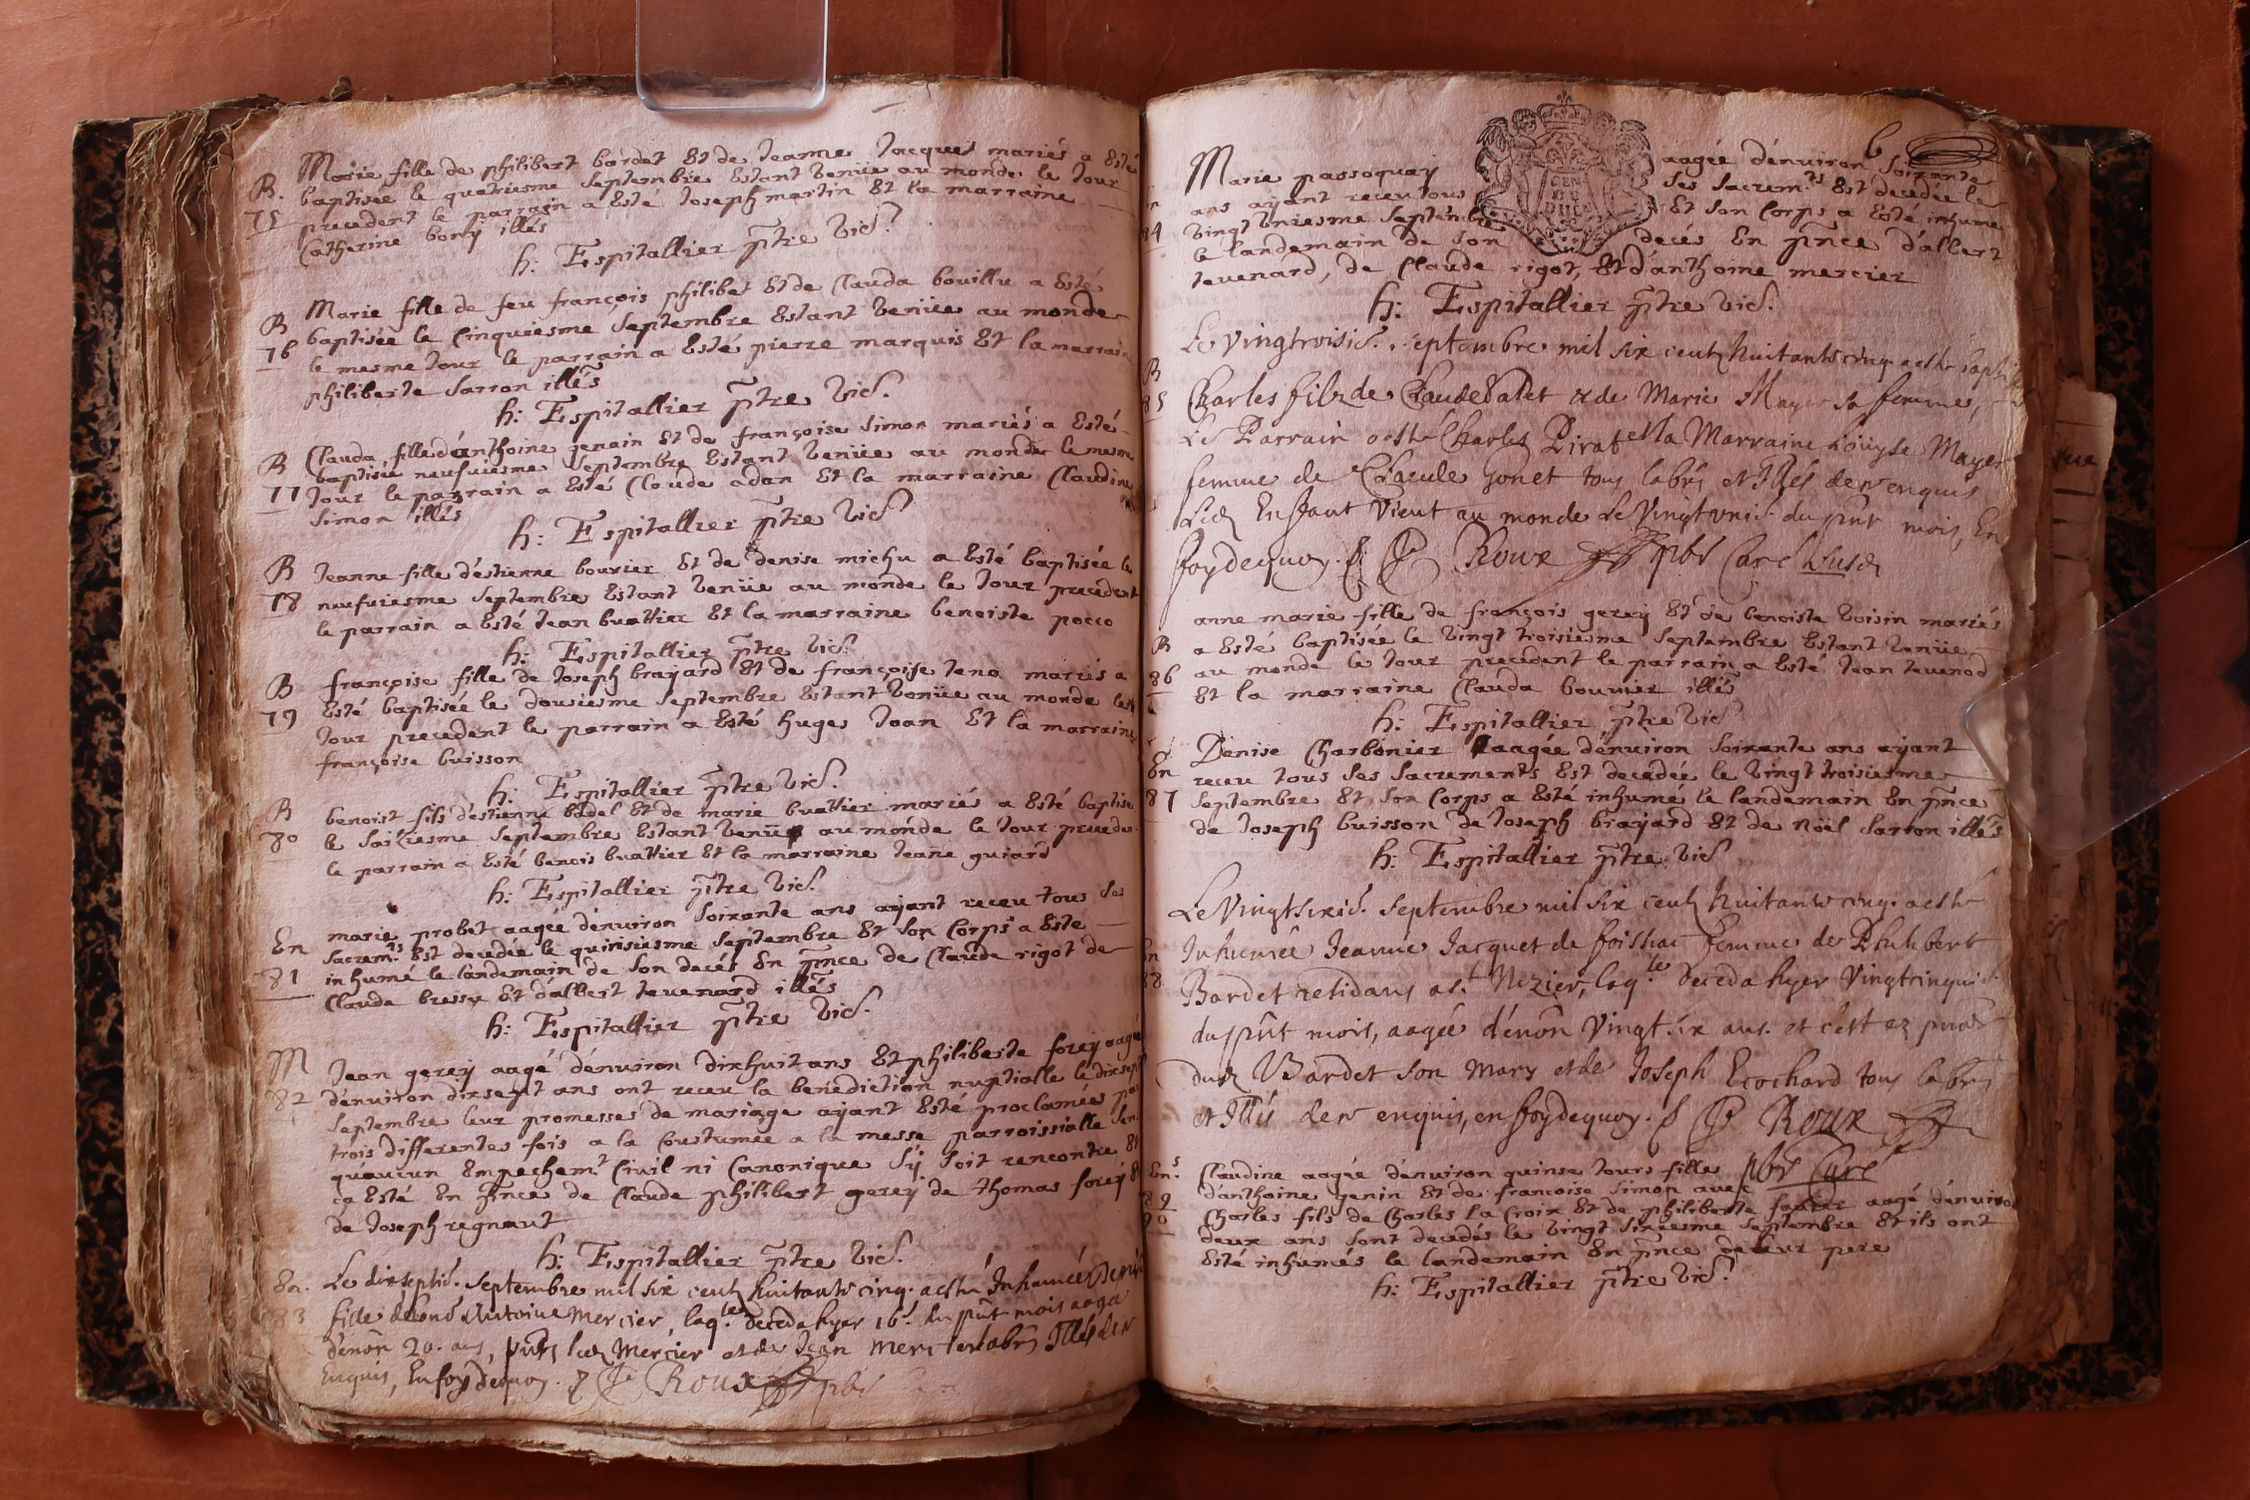 Marie fille de philibert bardet Et de Jeanne Jacquet mariés a Esté
B. baptisée le quatriesme Septembre Estant venüe au monde le Jour
75 precedent le parrain a Este Joseph martin Et la marraine
Catherine bony illés
h: Espitallier ptre vic.
Marie fille de feu françois philibet Et de Clauda bouillu a Esté
B baptisée le Cinquiesme Septembre Estant venüe au monde
76 le mesme Jour le parrain a Esté pierre marquis Et la marraine
philiberte Sarron illés
h: Espitallier ptre vic.
Clauda fille d'anthoine jenain Et de françoise Simon mariés a Esté
B baptisée neufuiesme Septembre Estant venüe au monde le mesme
77 Jour le parrain a Esté Claude adan Et la marraine Claudine
Simon illés
h: Espitallier ptre vic.
B Jeanne fille d'estienne bouvier Et de denise michu a Esté baptisée le
78 neufuiesme Septembre Estant venüe au monde le Jour precedent
le parrain a Esté Jean buattier Et la marraine benoiste pocco
h: Espitallier ptre vic.
B françoise fille de Joseph brayard Et de françoise tena mariés a
79 Esté baptisée le dousiesme Septembre Estant venüe au monde le
Jour precedent le parrain a Esté huges Joan Et la marraine
françoise buisson
h: Espitallier ptre vic.
B benoist fils d'estienne badel Et de marie buattier mariés a Esté baptisé
80 le Saiziesme Septembre Estant venüe au monde le Jour preceden
le parrain a Esté benois buattier Et la marraine Jeane guiard
h: Espitallier ptre vic.
marie probet aagée d'enuiron Soixante ans ayant receu tous Ses
En Sacremts Est decedée le quinsiesme Septembre Et Son Corps a Este
81 inhumé le landemain de Son decés En pnce de Claude rigot de
Claude bressy Et d'albert teuenard illés
h: Espitallier ptre vic.
M Jean gerey aagé d'enuiron dixhuit ans Et philiberte forey aagée
82 d'enuiron dixsept ans ont receu la benediction nuptialle le dixsept
Septembre leur promesses de mariage ayant Esté proclamées par
trois differentes fois a la Coustumée a la messe parroissialle Sen
qu'aucun Empechemt Civil ni Canonique S'ÿ Soit rencontré Et
ça Esté En pnce de Claude philibert gerey de thomas forey Et
de Joseph regnaut
h: Espitallier ptre vic.
En. Le dixseptie. Septembre mil six cents huitante cinq. a esté Inhumée Denise
83 fille de Antoine Mercier, laqle. deceda hyer 16e. du pnt mois aagée
d'enon 20. ans, pnts led Mercier et de Jean Mercier labrs Illés de ce
Enquis, En foy dequoy. Roux pbr
6
Marie passoquay aagée d'enuiron Soixante
ans ayant receu tous Ses Sacremts Est decedée le
84 vingt Uniesme Septembre Et Son Corps a Esté inhumé
le landemain de Son decés En pnce d'albert
teuenard, de Claude rigot, Et d'anthoine mercier
h: Espitallier ptre vic.
Le vingtroisie. Septembre mil six cents huitante cinq a esté bapti
B Charles filz de Claude et de Marie Mayer sa femme,
85 Le Parrain a esté Charles Pirat et la Marraine Louyse Mayer
femme de Claude Gonet tous labrs et Illés de ce enquis
Led Enfant vient au monde le Vingt unie du pnt mois, En
foy dequoy. Roux pbr Curé
anne marie fille de françois gerey Et de benoiste voisin mariés
B a Esté baptisée le vingt troisiesme Septembre Estant venüe
86 au monde le Jour precedent le parrain a Esté Jean teuenod
Et la marraine Clauda bouvier illés
h: Espitallier ptre vic
Denise Charbonier aagée d'enuiron Soixante ans ayant
En receu tous Ses Sacrements Est decedée le vingt troisiesme
87 Septembre Et Son Corps a Esté inhumé le landemain En pnce
de Joseph buisson de Joseph brayard Et de noël Sarron illés
h: Espitallier ptre vic
Le Vingtsixie. Septembre mil six cents huitante cinq. a esté
En Inhumée Jeanne Jacquet de foissiac femme de Philibert
88 Bardet residans a St Nizier, laqle. deceda hyer Vingtcinquie
du pnt mois, aagée d'enon Vingt six ans. et c'est ez pnces
dud Bardet son mary et de Joseph Ecochard tous labrs
et Illés de ce enquis, en foy dequoy. Roux
pbr Curé
Ens. Claudine aagée d'enuiron quinse Jours fille
89 d'anthoine genin Et de françoise Simon auec
90 Charles fils de Charles la Croix Et de philiberte aagé d'enuiron
deux ans Sont decedés le vingt Sixiesme Septembre Et ils ont
Esté inhumés le landemain En pnce de leur pere
h: Espitallier ptre vic.